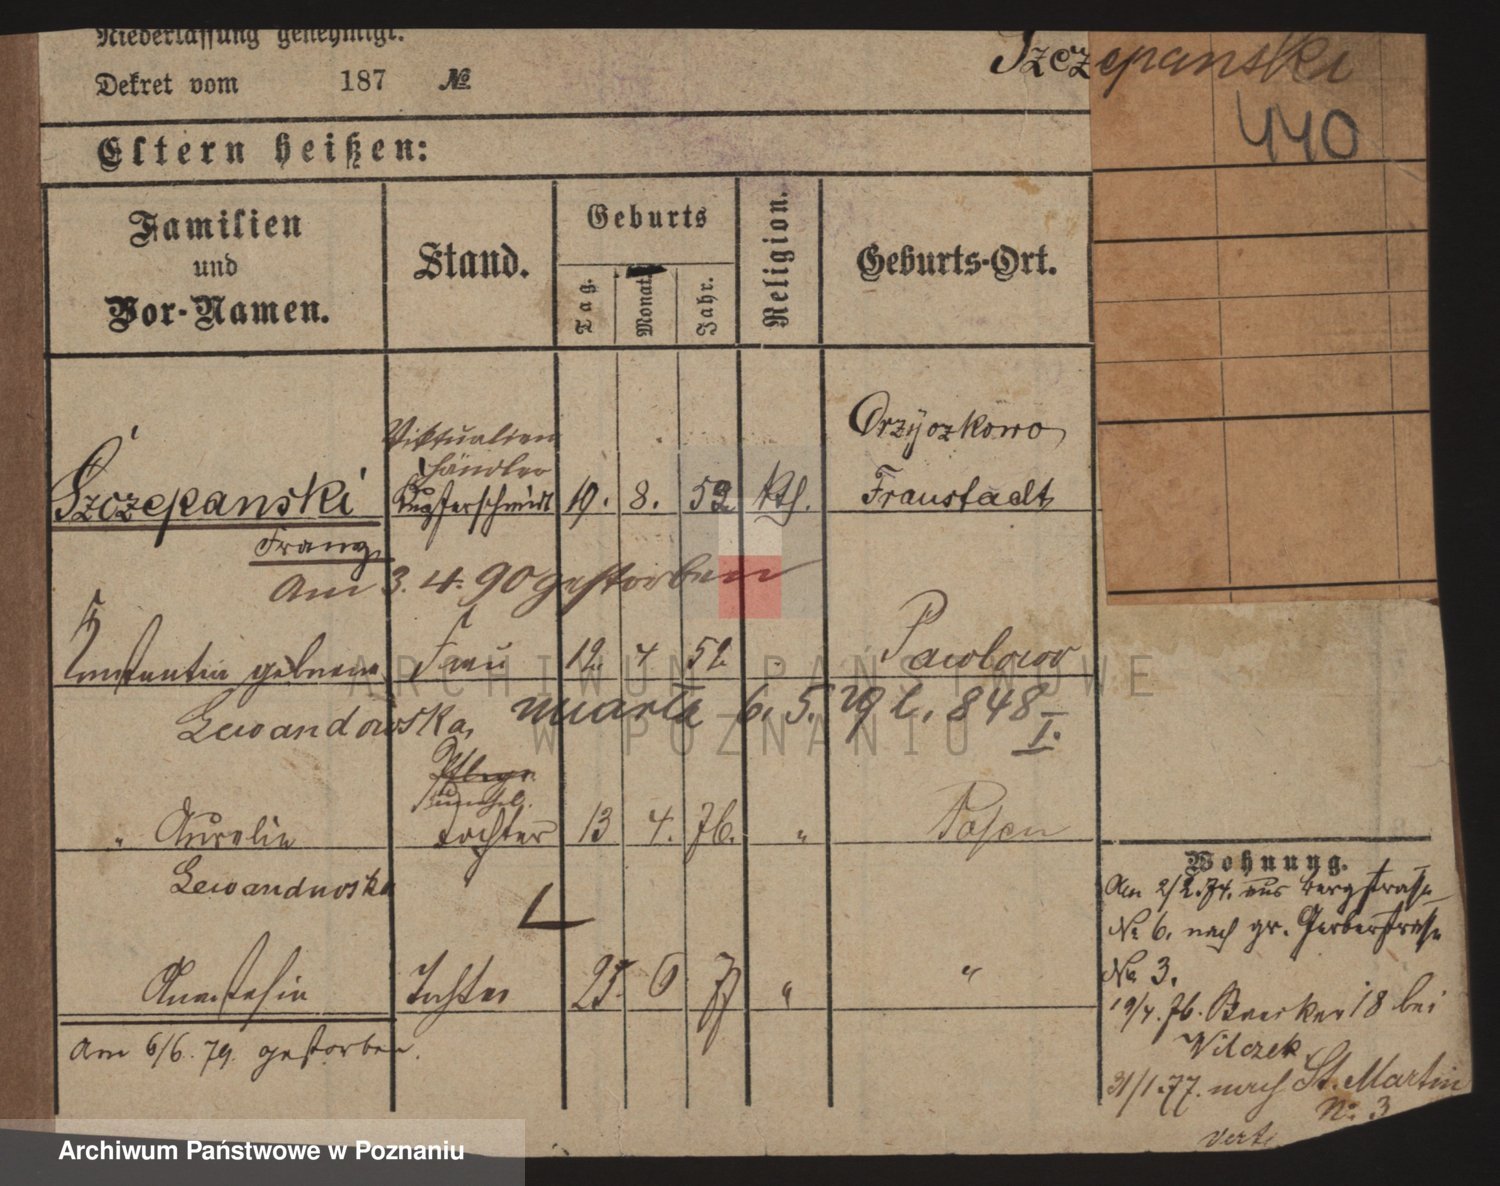 Niederlassung genehmigt.
Dekret vom 187 №
Szczepanski
440
Eltern heißen:
Familien
und
Vor-Namen.
Stand.
Geburts
Tag.
Monat.
Jahr.
Religion.
Geburts-Ort.
Viktualien
händler
Szczepanski Kupferschmidt 19. 8. 52 kth.
Orzyczkowo
Fraustadt
Franz
Am 3. 4. 90 gestorben
Konstantin geborene Frau 12. 4 52 Pawlowo
Lewandowska,
umarła 6. 5. 79 l. 848
I.
Pflege
" Aurelie tochter 13 4. 76. " Posen
Lewandowska
Anastasia Tochter 25. 6 77 " "
Am 6/6. 79. gestorben.
Wohnung.
Am 2/2. 74. aus Bergstrasse
№ 6. nach gr. Gerberstrasse
№ 3.
19/4. 76. Baecker 18 bei
Wilczek.
31/1. 77. nach St. Martin
№ 3
verte
ARCHIWUM PAŃSTWOWE
W POZNANIU
Archiwum Państwowe w Poznaniu